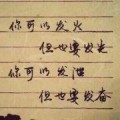 你可以发火
但也要发光
你可以发泄
但也要发奋